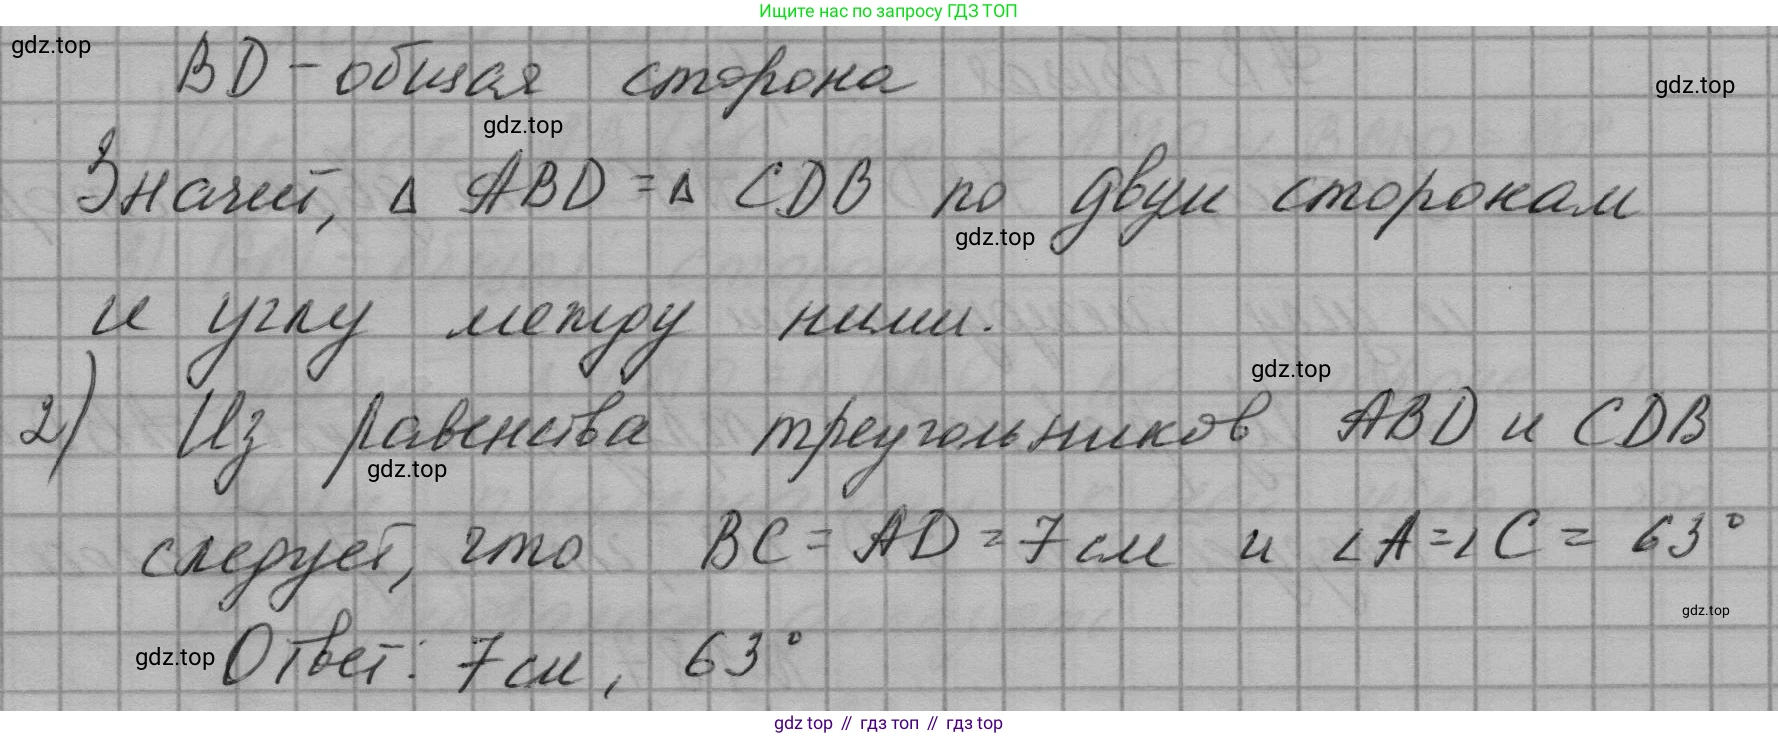 Ищите нас по запросу ГДЗ ТОП
gdz.top
BD - общая сторона
gdz.top
gdz.top
Значит, Δ ABD = Δ CDB по двум сторонам
gdz.top
и углу между ними.
gdz.top
2) Из равенства треугольников ABD и CDB
gdz.top
следует, что BC = AD = 7 см и ∠A = ∠C = 63°
gdz.top
Ответ: 7 см, 63°
gdz.top
gdz top // гдз топ // гдз top